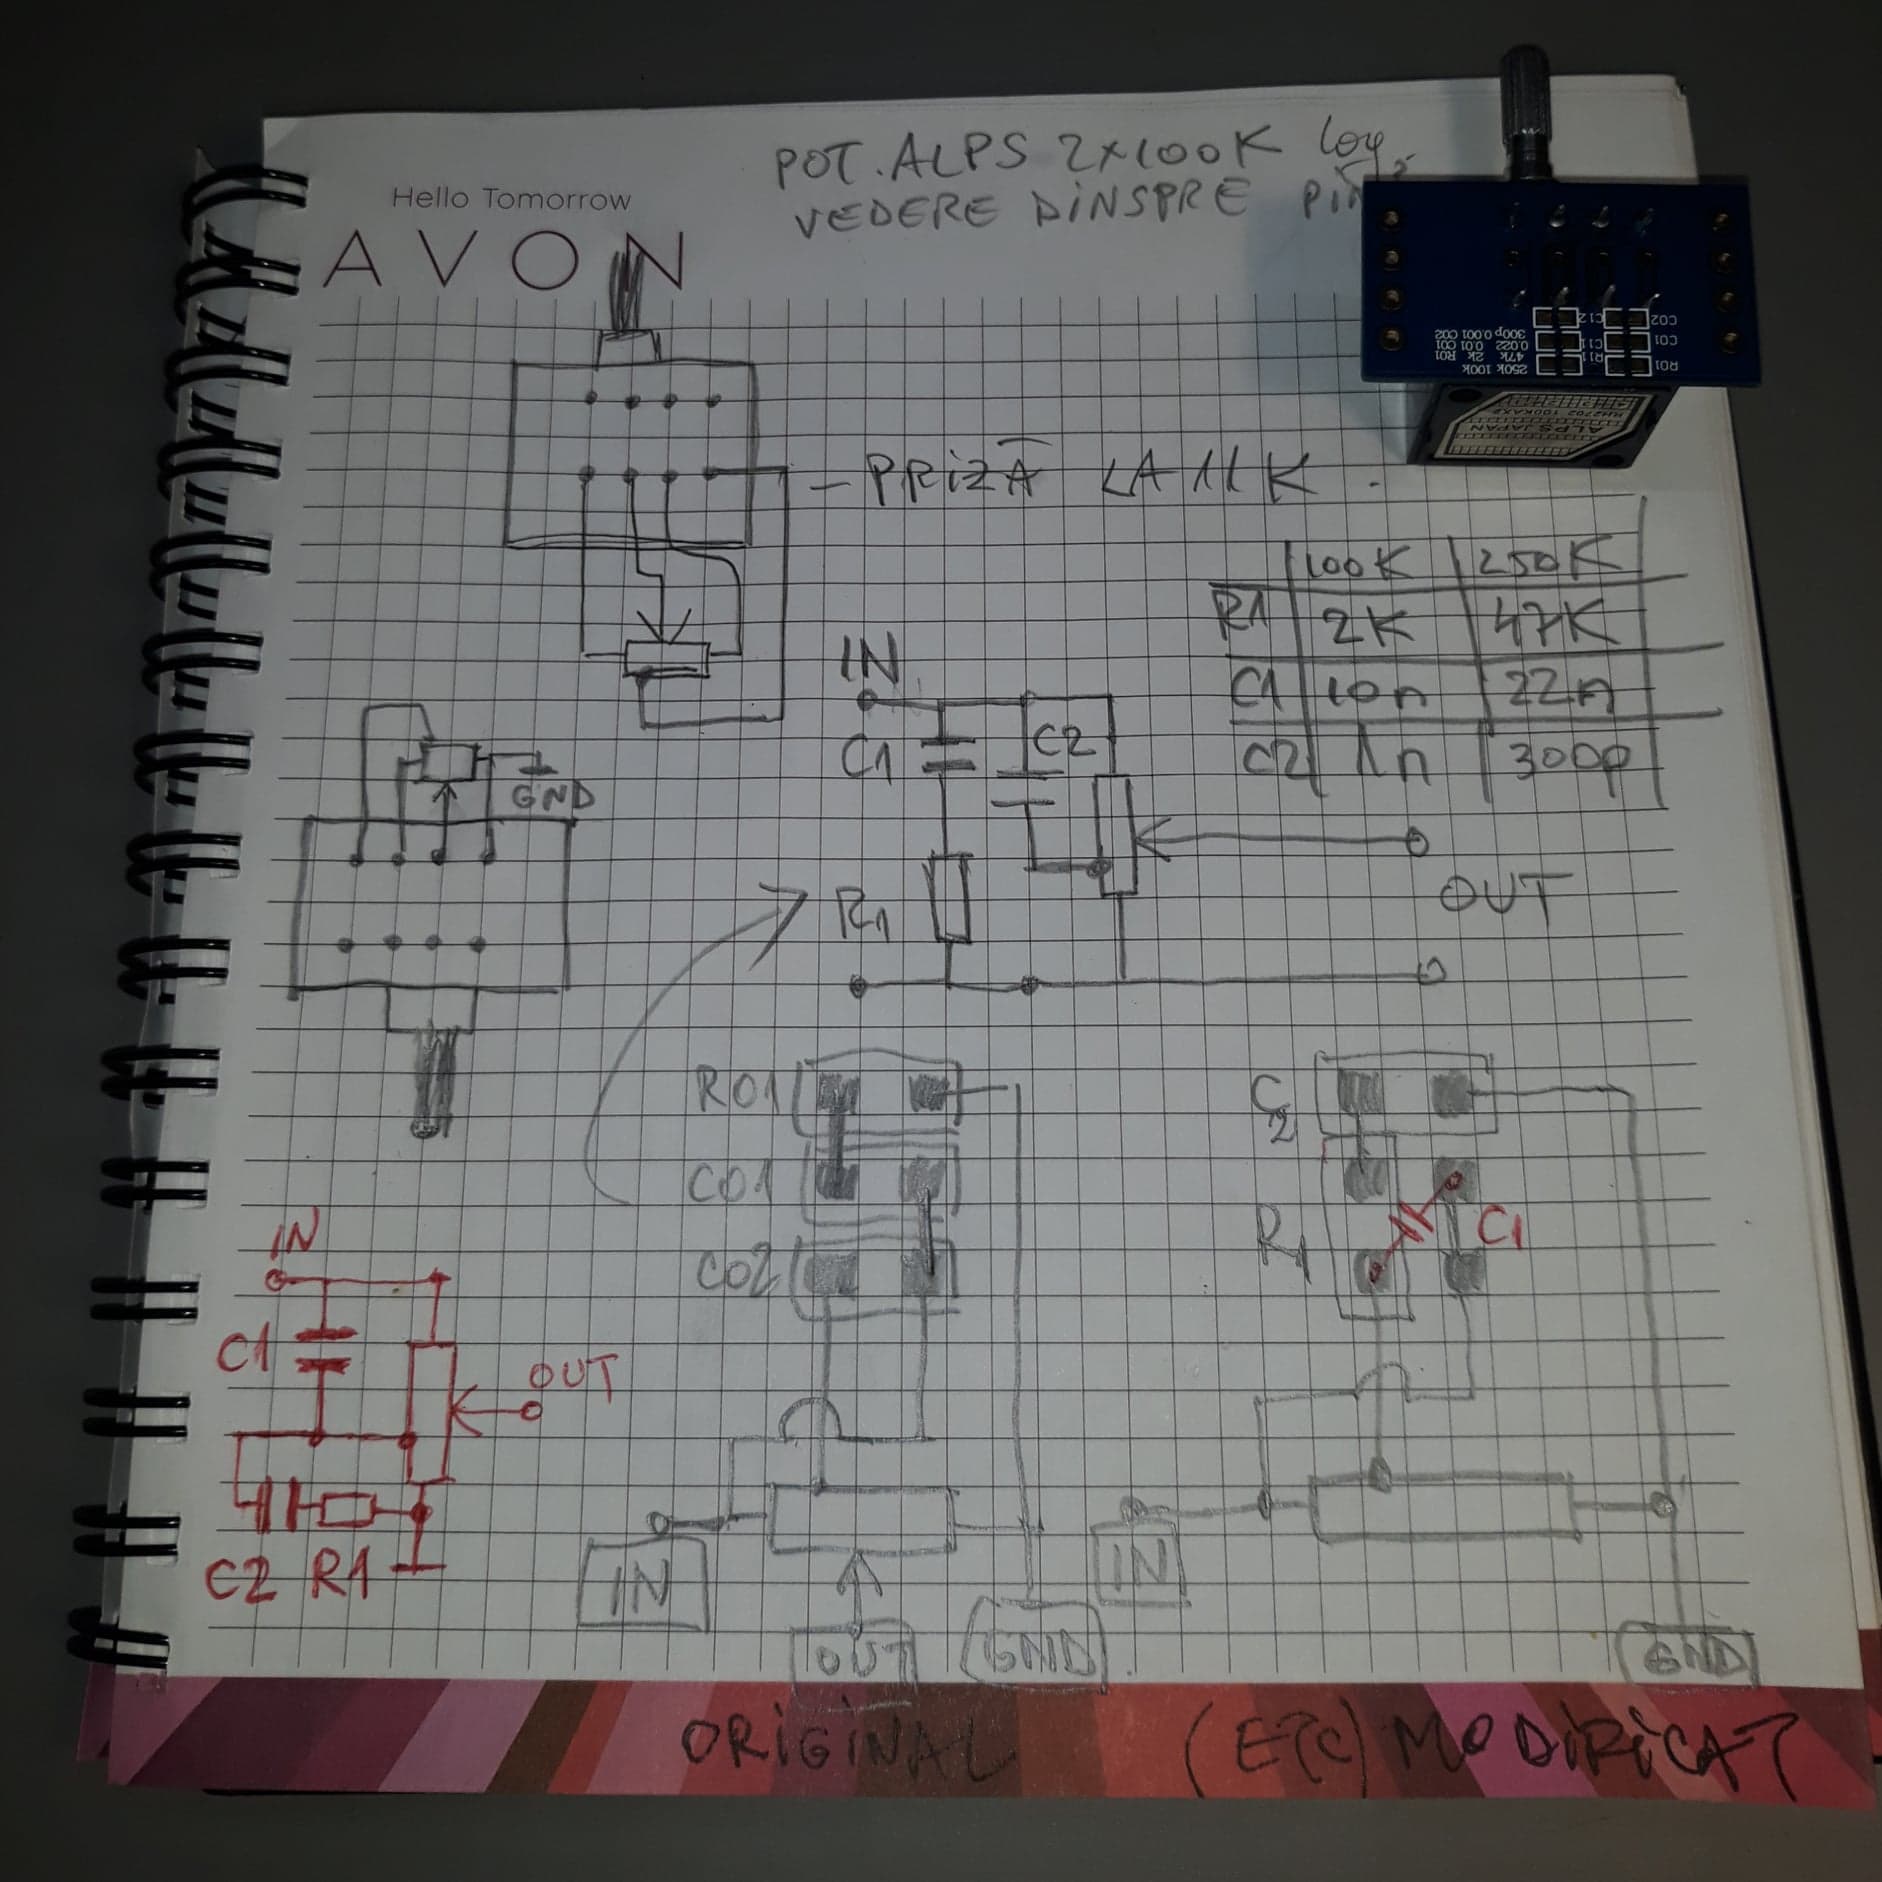 POT. ALPS 2x100K log.
VEDERE DINSPRE
Hello Tomorrow
AVON
C02 C12
C01 C11
R01 R11
300p 0.001 C02
0.022 0.01 C01
47k 2k R01
250k 100k
ALPS JAPAN
RH2702 100KAX2
- PRIZĂ LA 11K.
100K 250K
R1 2K 47K
C1 10n 22n
C2 1n 300p
IN
C1 C2
GND
R1
OUT
R01
C01
C02
C2
R1 C1
IN
C1
OUT
C2 R1
IN
OUT
GND
IN
GND
ORIGINAL (ETC) MODIFICAT